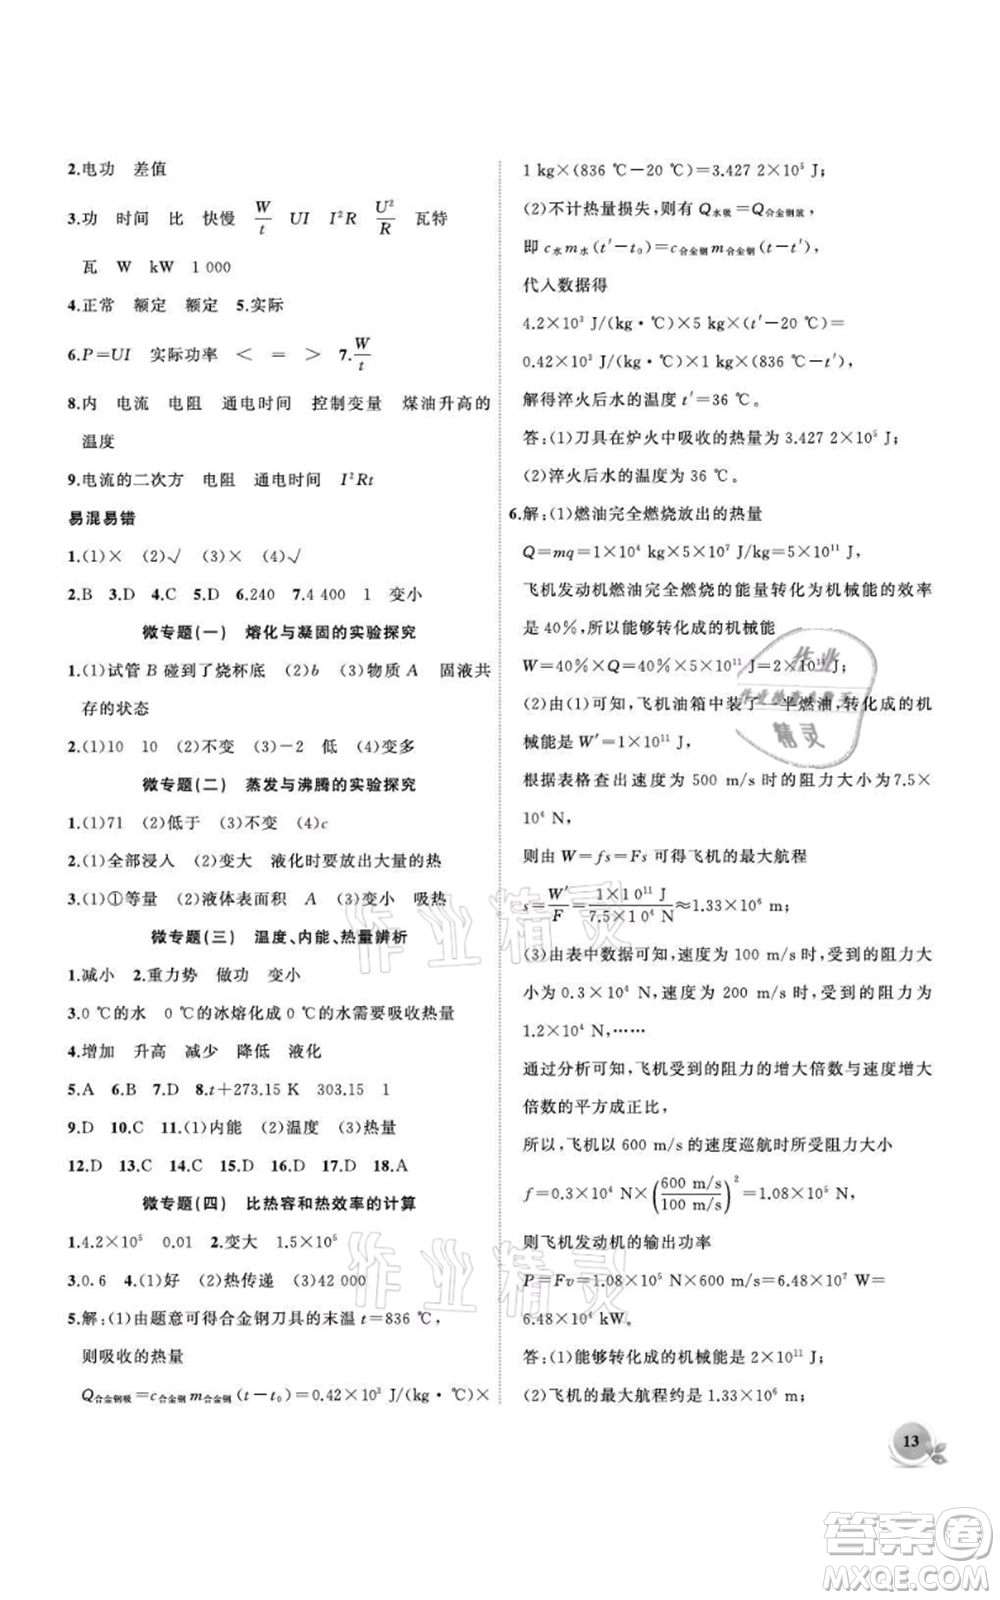 2.电功 差值
3.功 时间 比 快慢 W/t UI I²R U²/R 瓦特
瓦 W kW 1 000
4.正常 额定 额定 5.实际
6.P=UI 实际功率 < = > 7.W/t
8.内 电流 电阻 通电时间 控制变量 煤油升高的
温度
9.电流的二次方 电阻 通电时间 I²Rt
易混易错
1.(1)× (2)√ (3)× (4)√
2.B 3.D 4.C 5.D 6.240 7.4 400 1 变小
微专题(一) 熔化与凝固的实验探究
1.(1)试管 B 碰到了烧杯底 (2)b (3)物质 A 固液共
存的状态
2.(1)10 10 (2)不变 (3)-2 低 (4)变多
微专题(二) 蒸发与沸腾的实验探究
1.(1)71 (2)低于 (3)不变 (4)c
2.(1)全部浸入 (2)变大 液化时要放出大量的热
3.(1)①等量 (2)液体表面积 A (3)变小 吸热
微专题(三) 温度、内能、热量辨析
1.减小 2.重力势 做功 变小
3.0 ℃的水 0 ℃的冰熔化成 0 ℃的水需要吸收热量
4.增加 升高 减少 降低 液化
5.A 6.B 7.D 8.t+273.15 K 303.15 1
9.D 10.C 11.(1)内能 (2)温度 (3)热量
12.D 13.C 14.C 15.D 16.D 17.D 18.A
微专题(四) 比热容和热效率的计算
1.4.2×10⁵ 0.01 2.变大 1.5×10⁵
3.0.6 4.(1)好 (2)热传递 (3)42 000
5.解:(1)由题意可得合金钢刀具的末温 t=836 ℃,
则吸收的热量
Q合金钢吸=c合金钢m合金钢(t-t₀)=0.42×10³ J/(kg·℃)×
1 kg×(836 ℃-20 ℃)=3.427 2×10⁵ J;
(2)不计热量损失,则有 Q水吸=Q合金钢放,
即 c水m水(t′-t₀)=c合金钢m合金钢(t-t′),
代入数据得
4.2×10³ J/(kg·℃)×5 kg×(t′-20 ℃)=
0.42×10³ J/(kg·℃)×1 kg×(836 ℃-t′),
解得淬火后水的温度 t′=36 ℃。
答:(1)刀具在炉火中吸收的热量为 3.427 2×10⁵ J;
(2)淬火后水的温度为 36 ℃。
6.解:(1)燃油完全燃烧放出的热量
Q=mq=1×10⁴ kg×5×10⁷ J/kg=5×10¹¹ J,
飞机发动机燃油完全燃烧的能量转化为机械能的效率
是 40%,所以能够转化成的机械能
W=40%×Q=40%×5×10¹¹ J=2×10¹¹ J;
(2)由(1)可知,飞机油箱中装了一半燃油,转化成的机
械能是 W′=1×10¹¹ J,
根据表格查出速度为 500 m/s 时的阻力大小为7.5×
10⁴ N,
则由 W=fs=Fs 可得飞机的最大航程
s=W′/F=1×10¹¹ J/7.5×10⁴ N≈1.33×10⁶ m;
(3)由表中数据可知,速度为 100 m/s 时,受到的阻力大
小为 0.3×10⁴ N,速度为 200 m/s 时,受到的阻力为
1.2×10⁴ N,……
通过分析可知,飞机受到的阻力的增大倍数与速度增大
倍数的平方成正比,
所以,飞机以 600 m/s 的速度巡航时所受阻力大小
f=0.3×10⁴ N×(600 m/s/100 m/s)²=1.08×10⁵ N,
则飞机发动机的输出功率
P=Fv=1.08×10⁵ N×600 m/s=6.48×10⁷ W=
6.48×10⁴ kW。
答:(1)能够转化成的机械能是 2×10¹¹ J;
(2)飞机的最大航程约是 1.33×10⁶ m;
13
作业精灵
作业精灵
作业
精灵
答案卷
MXQE.COM